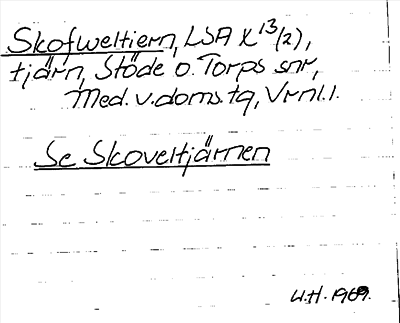 Skofweltiern, LSA X 13/2),
tjärn, Stöde o. Torps snr,
Med. v. doms. tg, Vrnl. l.
Se Skoveltjärnen
W.H. 1969.